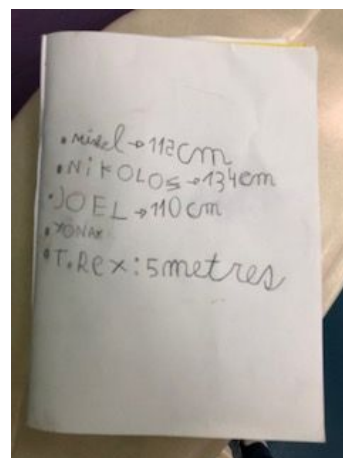 • Mixel → 112cm
• NiKOLOS → 134cm
• JOEL → 110cm
• YONAX
• T.Rex: 5 metres